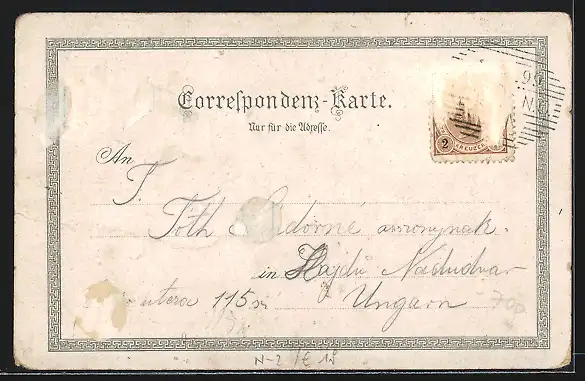 Correspondenz-Karte.
Nur für die Adresse.
96
N.
2 KREUZER
An
T.
Tóth Sándorné asszonynak.
in Hajdú Nádudvar
utcza 115 sz
Ungarn
700
N-2 /E 12